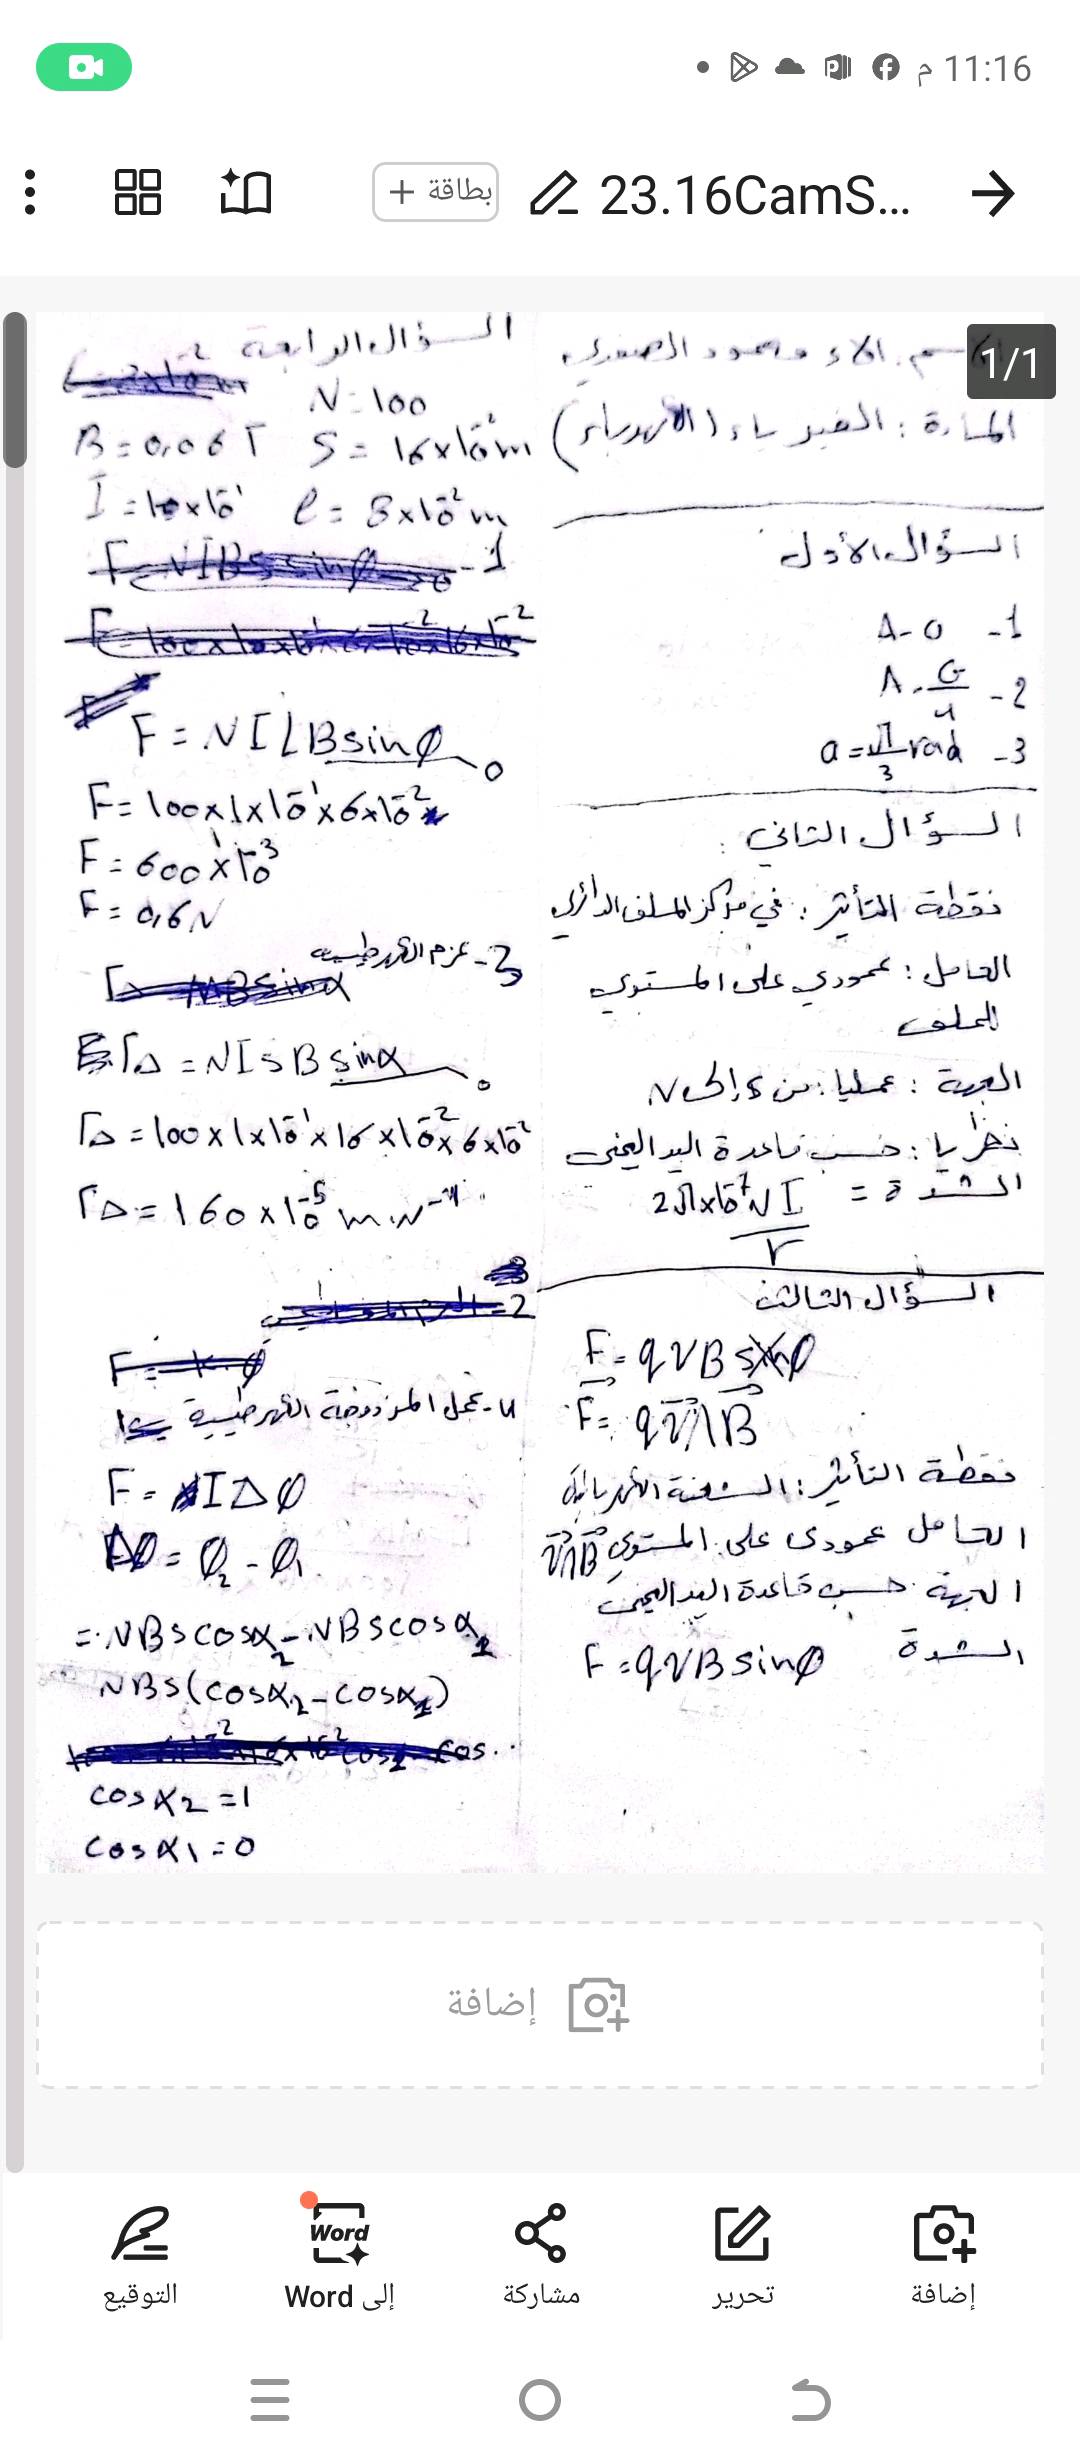 11:16 م
23.16CamS...
بطاقة +
1/1
المادة : الفيزياء (الكهرباء)
السؤال الأول
1- A-0
2- A. G/4
3- a = π/3 rad
السؤال الثاني :
نقطة التأثير : في مركز الملف الدائري
الحامل : عمودي على المستوي
الملف
الجهة : عمليا : من S إلى N
نظريا : حسب قاعدة اليد اليمنى
الشدة = 2π×10⁻⁷ N I / r
السؤال الثالث
F = qVB sinφ
F = qV∧B
نقطة التأثير : الشحنة الكهربائية
الحامل عمودي على المستوي V∧B
الجهة حسب قاعدة اليد اليمنى
الشدة F = qVB sinφ
السؤال الرابعة
N = 100
B = 0,06 T S = 16×10⁻² m
I = 10×10⁻¹ l = 8×10⁻² m
1-
F = N I L B sinφ
F = 100×1×10⁻¹×6×10⁻²
F = 600×10⁻³
F = 0,6 N
3- عزم الكهرطيسية
ΓΔ = N I S B sinα
ΓΔ = 100×1×10⁻¹×16×10⁻²×6×10⁻²
ΓΔ = 160×10⁻⁵ m.N⁻⁴
2-
4- عمل المزدوجة الكهرطيسية
F = IΔφ
Δφ = φ₂ - φ₁
= NBS cosα₂ - NBS cosα₂
NBS (cosα₂ - cosα₁)
cosα₂ = 1
cosα₁ = 0
إضافة
التوقيع
Word
إلى Word
مشاركة
تحرير
إضافة